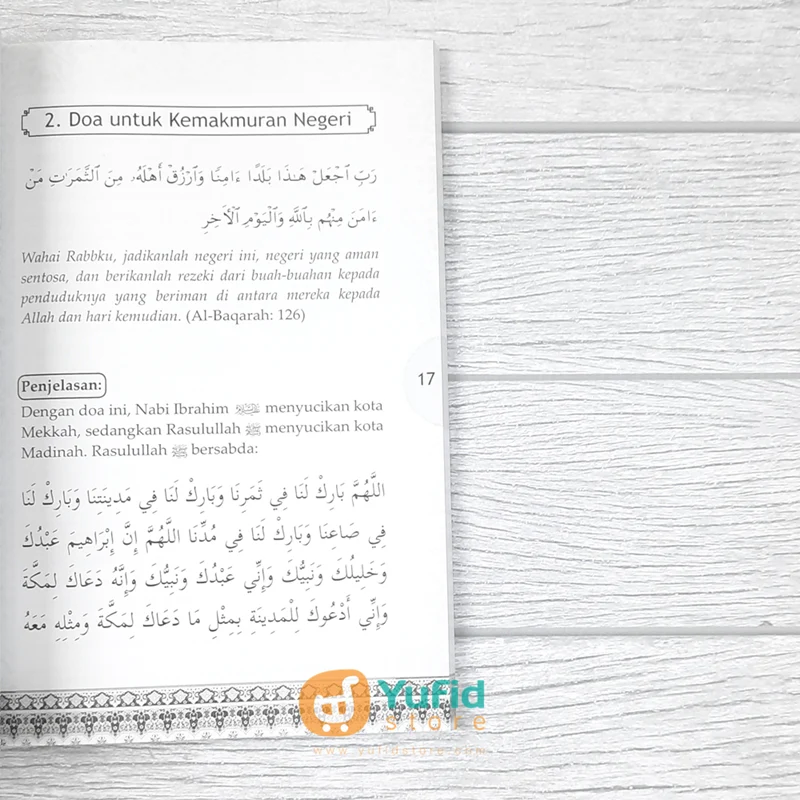 2. Doa untuk Kemakmuran Negeri
رَبِّ ٱجْعَلْ هَـٰذَا بَلَدًا ءَامِنًا وَٱرْزُقْ أَهْلَهُۥ مِنَ ٱلثَّمَرَٰتِ مَنْ
ءَامَنَ مِنْهُم بِٱللَّهِ وَٱلْيَوْمِ ٱلْأَخِرِ
Wahai Rabbku, jadikanlah negeri ini, negeri yang aman
sentosa, dan berikanlah rezeki dari buah-buahan kepada
penduduknya yang beriman di antara mereka kepada
Allah dan hari kemudian. (Al-Baqarah: 126)
17
Penjelasan:
Dengan doa ini, Nabi Ibrahim menyucikan kota
Mekkah, sedangkan Rasulullah ﷺ menyucikan kota
Madinah. Rasulullah ﷺ bersabda:
اللَّهُمَّ بَارِكْ لَنَا فِي ثَمَرِنَا وَبَارِكْ لَنَا فِي مَدِينَتِنَا وَبَارِكْ لَنَا
فِي صَاعِنَا وَبَارِكْ لَنَا فِي مُدِّنَا اللَّهُمَّ إِنَّ إِبْرَاهِيمَ عَبْدُكَ
وَخَلِيلُكَ وَنَبِيُّكَ وَإِنِّي عَبْدُكَ وَنَبِيُّكَ وَإِنَّهُ دَعَاكَ لِمَكَّةَ
وَإِنِّي أَدْعُوكَ لِلْمَدِينَةِ بِمِثْلِ مَا دَعَاكَ لِمَكَّةَ وَمِثْلِهِ مَعَهُ
Yufid
store
www.yufidstore.com